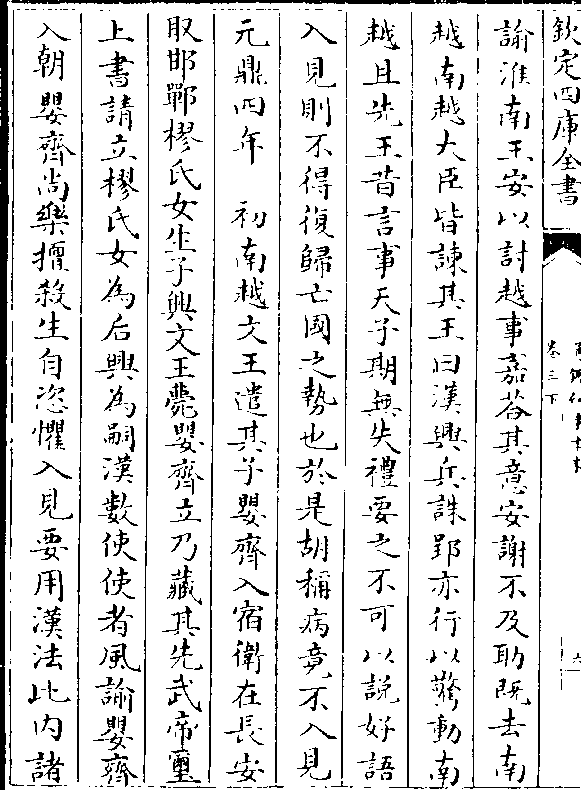 欽定四庫全書
卷三下
諭淮南王安以討越事嘉荅其意安謝不及助既去南
越南越大臣皆諫其王曰漢興兵誅郢亦行以驚動南
越且先王昔言事天子期無失禮要之不可以說好語
入見則不得復歸亡國之勢也於是胡稱病竟不入見
元鼎四年　初南越文王遣其子嬰齊入宿衛在長安
取邯鄲樛氏女生子興文王薨嬰齊立乃藏其先武帝璽
上書請立樛氏女為后興為嗣漢數使使者風諭嬰齊
入朝嬰齊尚樂擅殺生自恣懼入見要用漢法比内諸